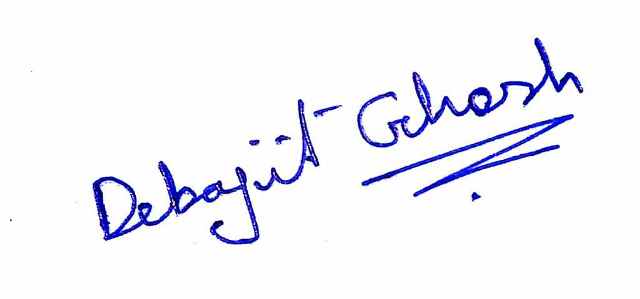 Debajit Ghosh